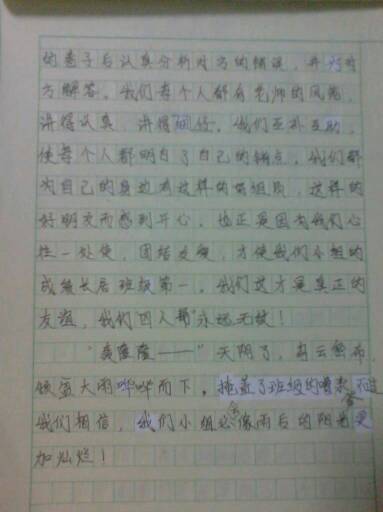 的卷子后认真分析对方的错误，并为对
方解答。我们每个人都有老师的风范，
讲得认真，讲得细致。我们互补互助，
使每个人都明白了自己的错点。我们都
为自己的身边有这样的好组员，这样的
好朋友而感到开心。也正是因为我们心
往一处使，团结友爱，才使我们小组的
成绩长居班级第一。我们这才是真正的
友谊，我们四人帮"永远无敌！
"轰隆隆——"天阴了，乌云密布，
倾盆大雨哗哗而下，掩盖了班级的嘈杂
我们相信，我们小组必会像雨后的阳光更
加灿烂！